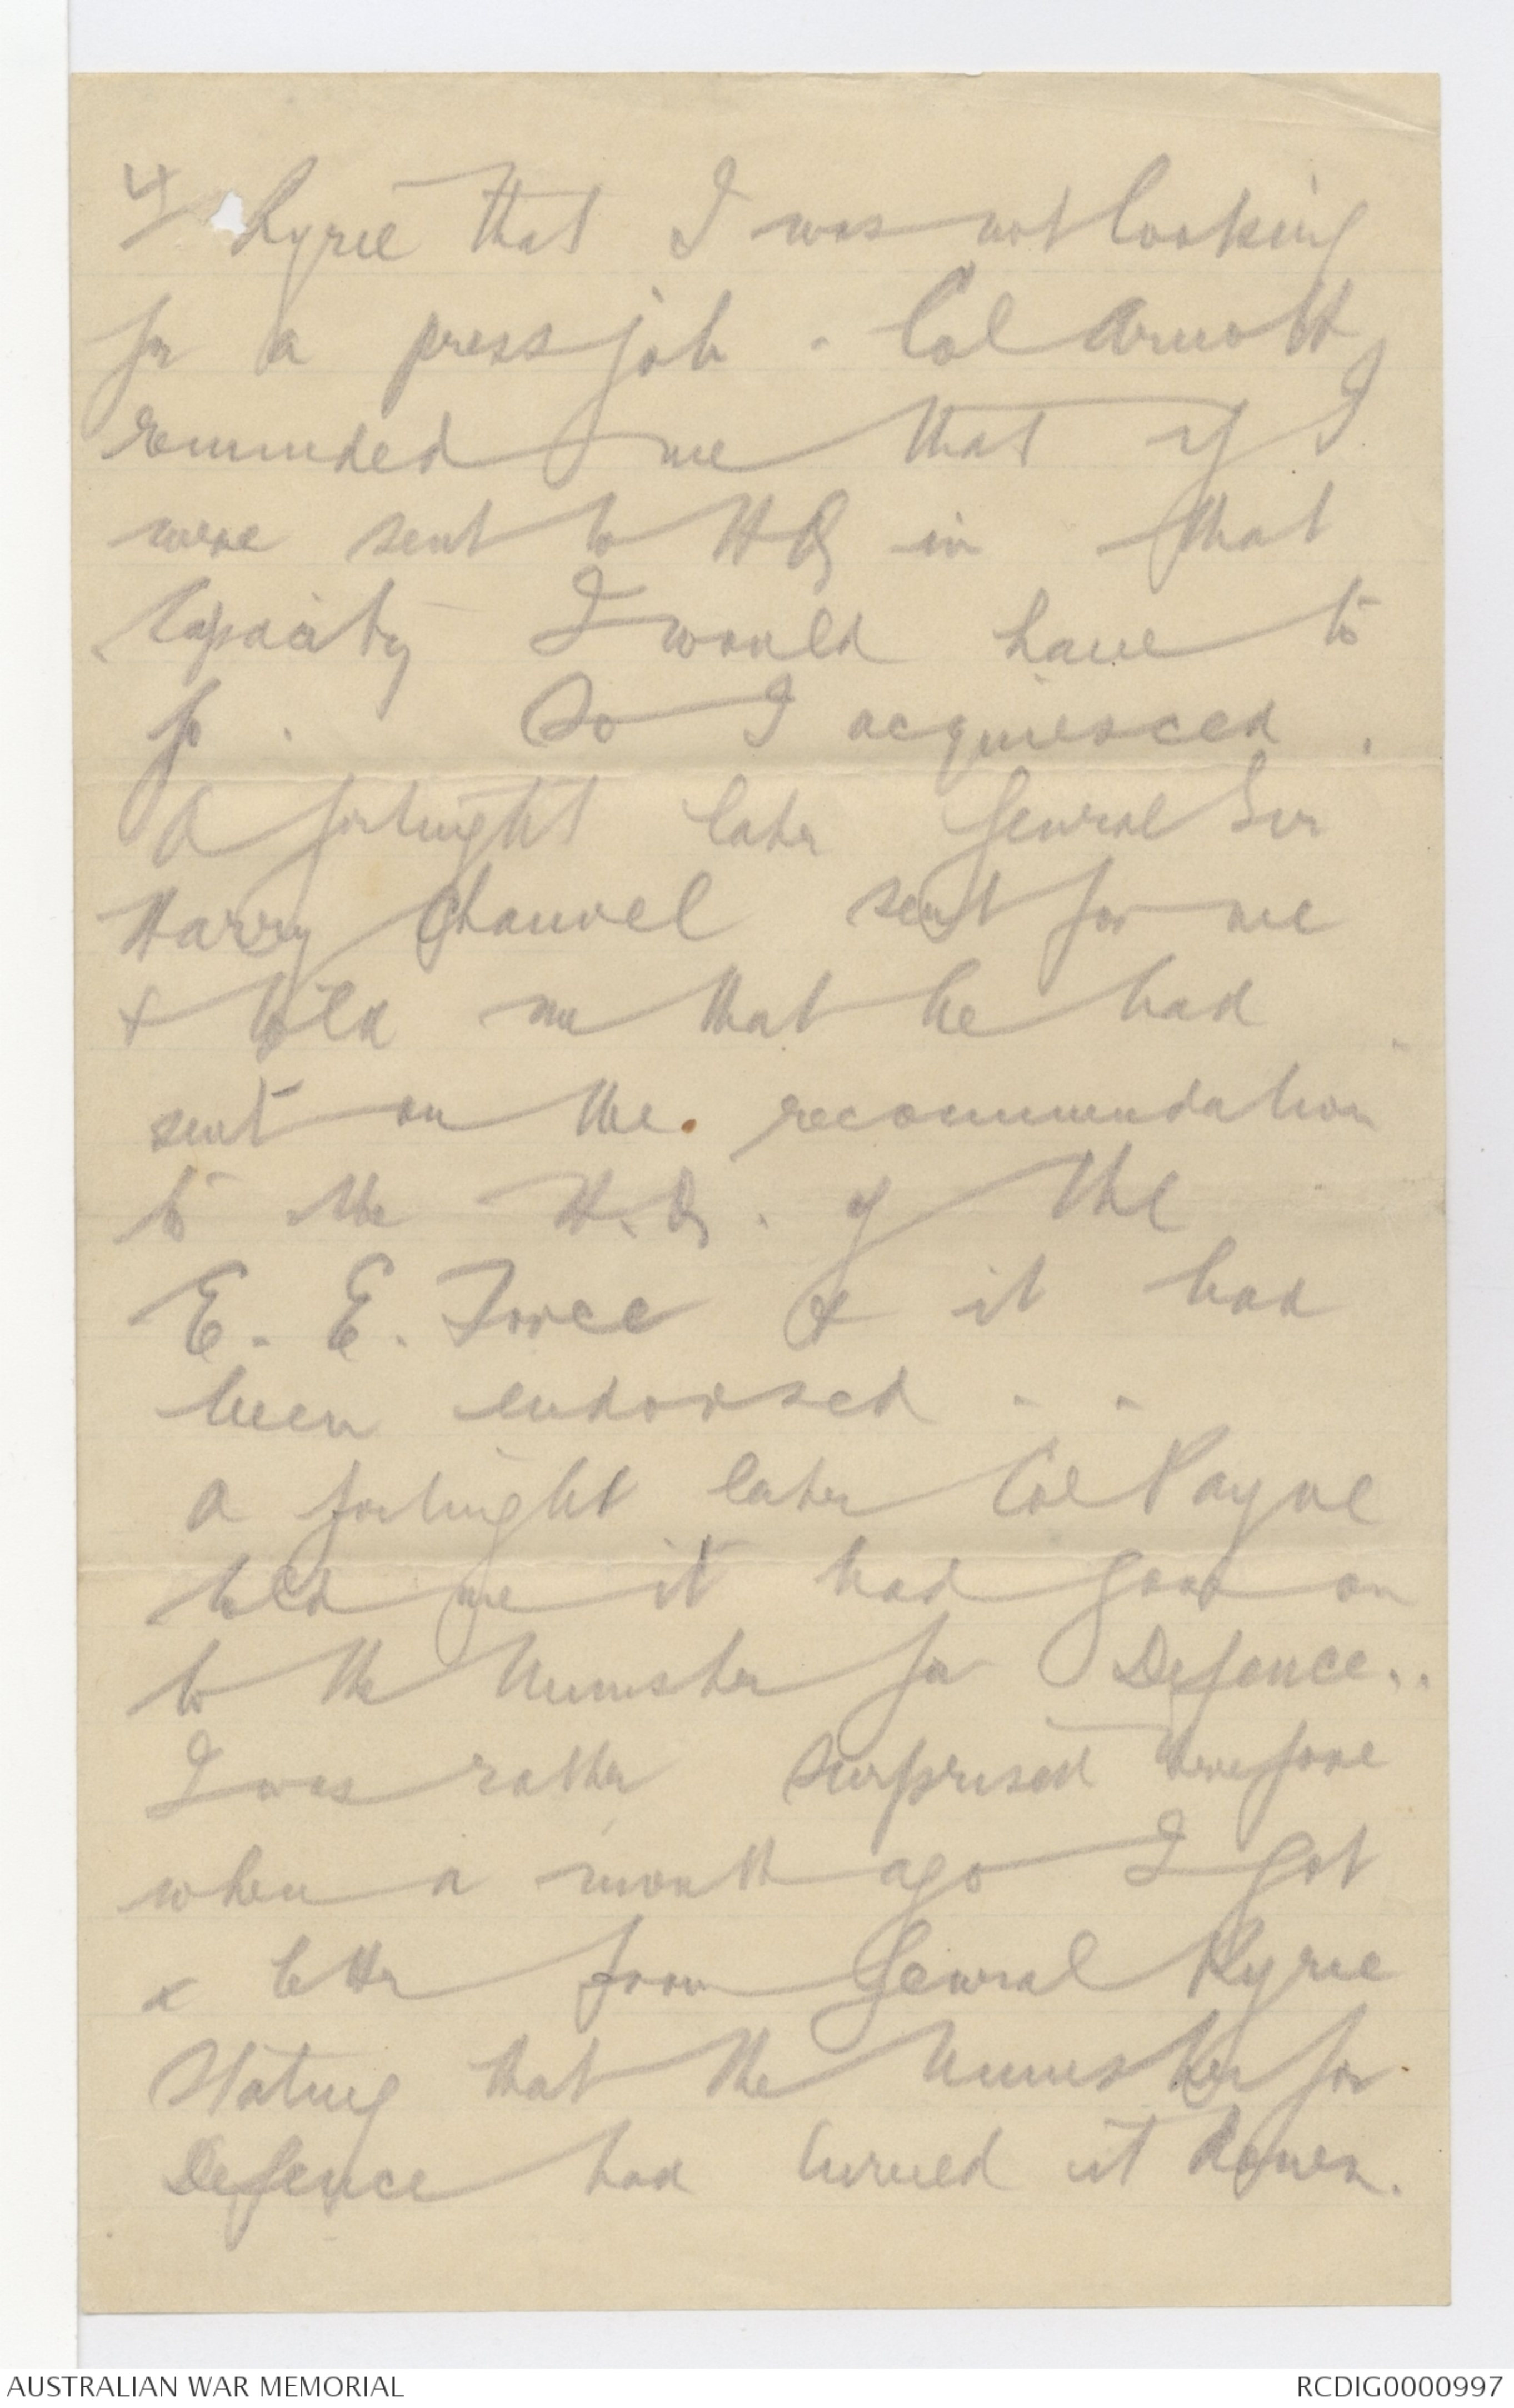 4/ Ryrie that I was not looking
for a press job. Col Arnott
reminded me that if I
were sent to HQ in that
Capacity I would have to
go. So I acquiesced.
A fortnight later General Sir
Harry Chauvel sent for me
+ told me that he had
sent on the recommendation
to the H.Q. of the
E. E. Force & it had
been endorsed . .
a fortnight later Col Payne
told me it had gone on
to the Minister for Defence..
I was rather surprised therefore
when a month ago I got
a letter from General Ryrie
stating that the Minister for
Defence had turned it down.
AUSTRALIAN WAR MEMORIAL
RCDIG0000997